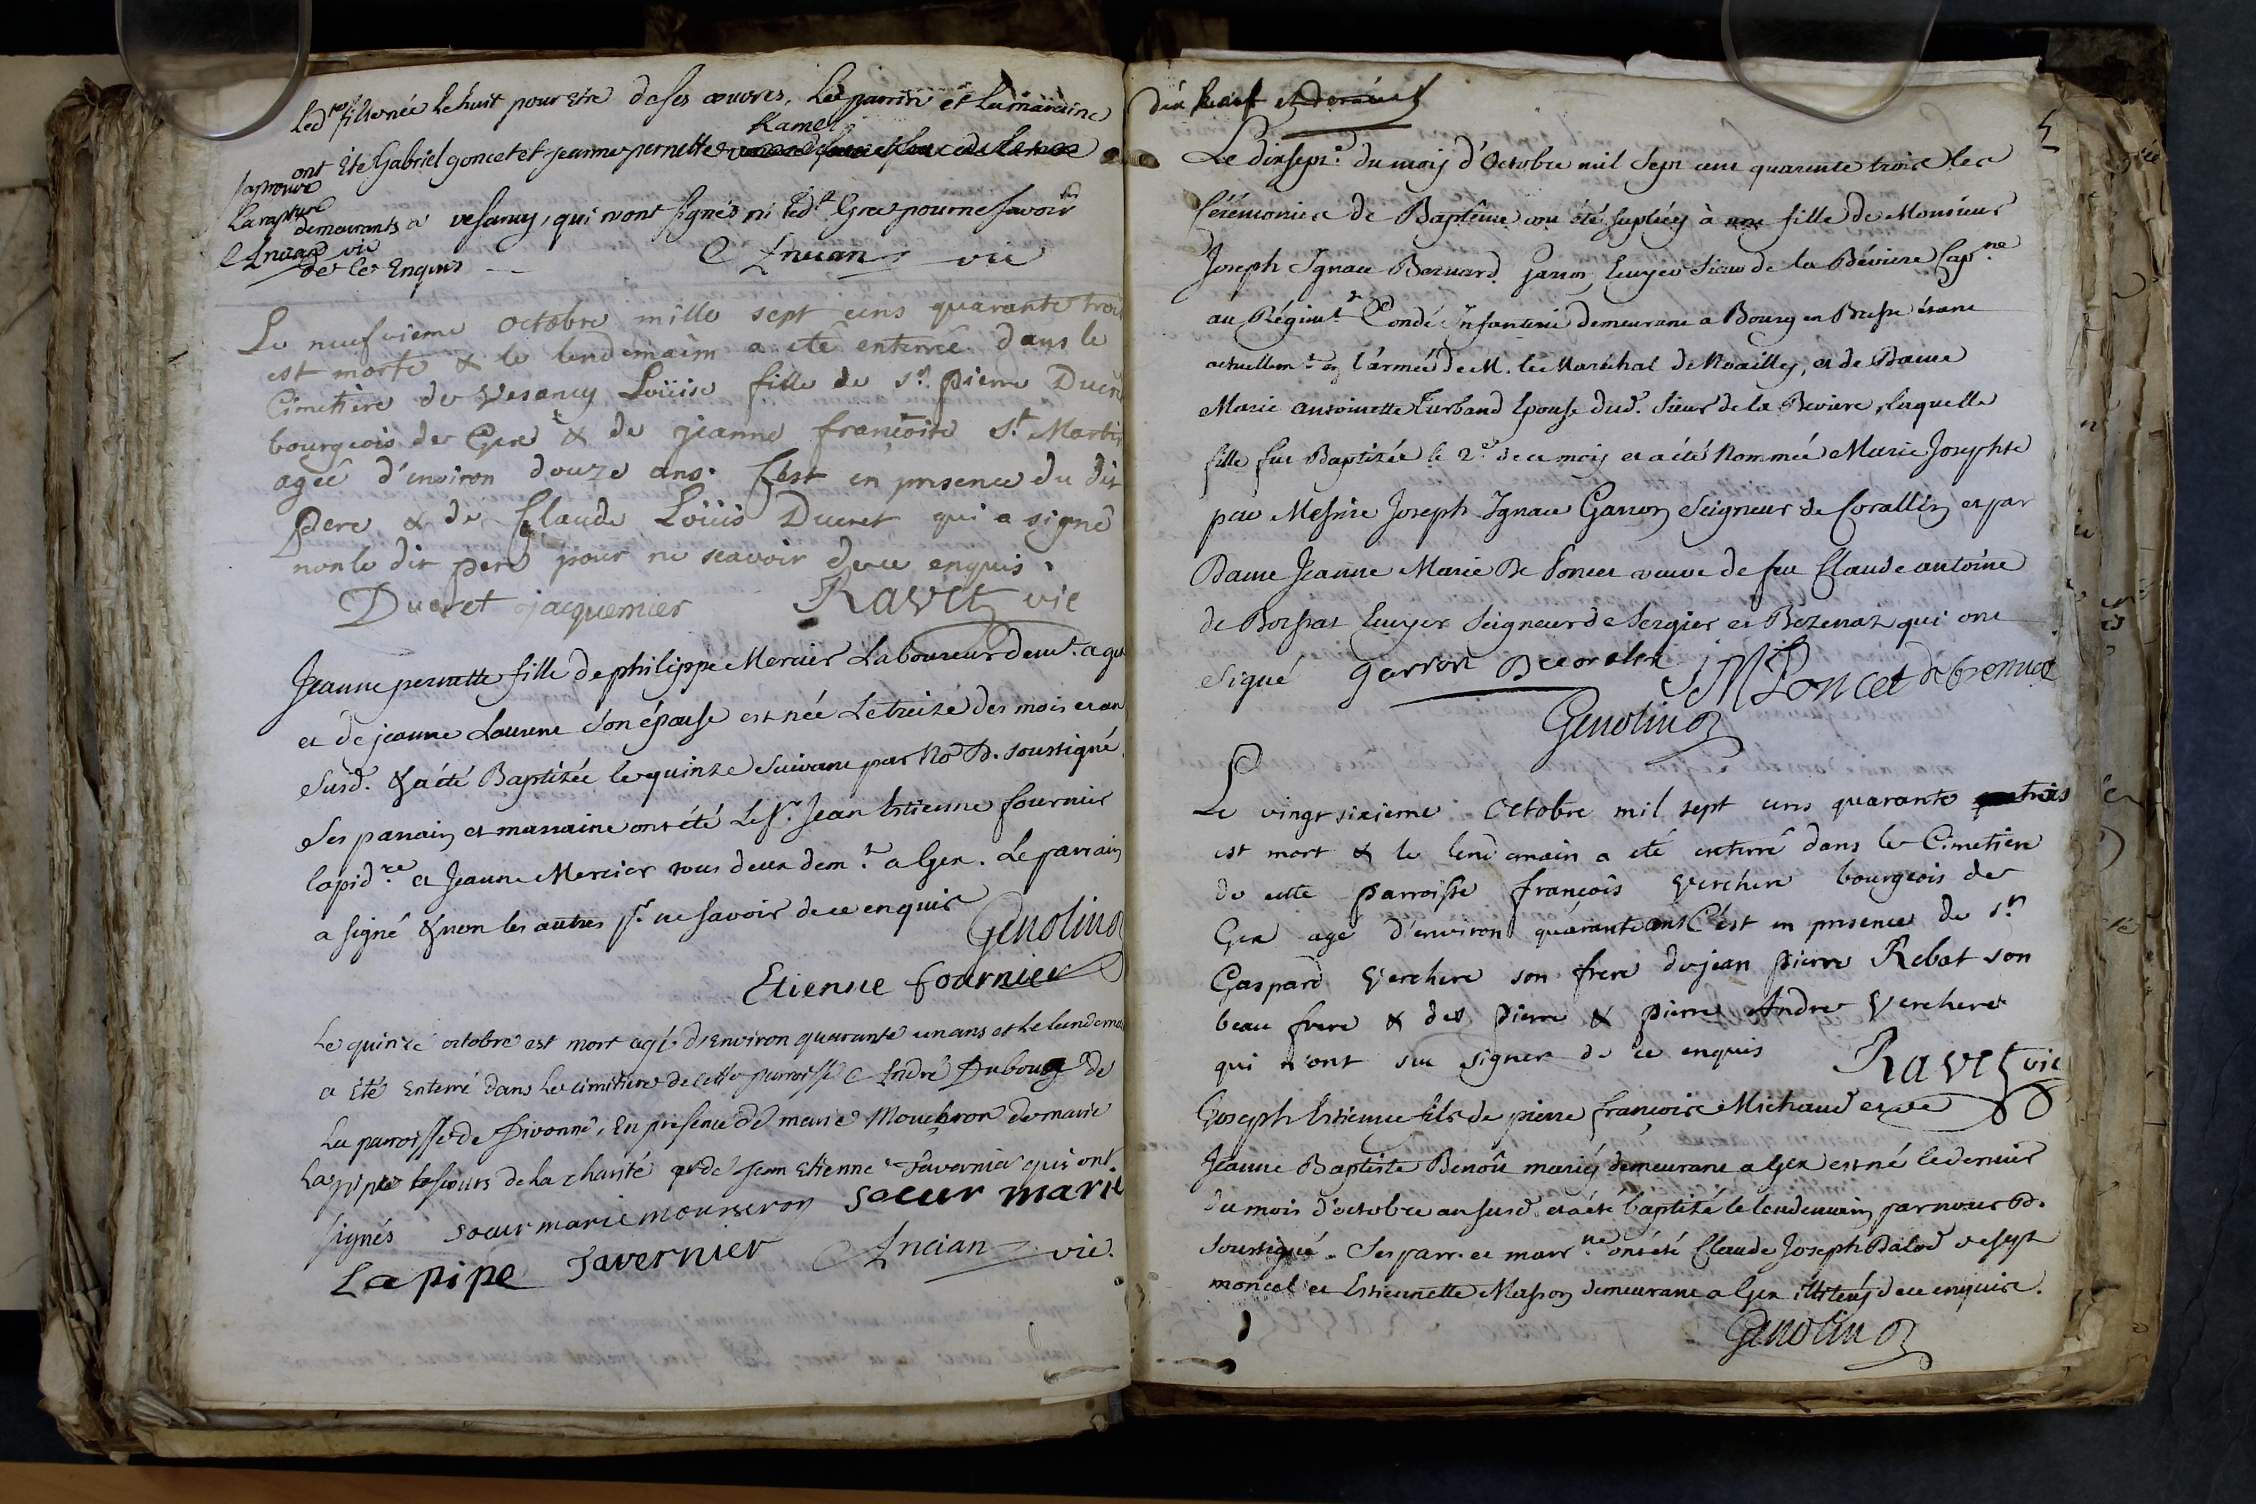 Led.te fille née le huit pour etre de ses œuvres. Les parrin et la maraine
Ramel
ont été Gabriel goncet et jeanne pernette
japrouve
la rapture
demeurants a vesancy, qui n'ont signés ni led.t Grec pour ne savoir
Ancian vic
de ce Enquis
Ancian vic
Le neufvieme octobre mille sept cens quarante trois
est morte & le lendemain a eté enterrée dans le
Cimetiere de Vesancy Loüise fille de s.r pierre Ducret
bourgeois de Gex & de jeanne françoise s.t Martin
agée d'environ douze ans. C'est en presence du dit
Pere & de Claude Loüis Ducret qui a signé
non le dit pere pour ne scavoir de ce enquis.
Ducret jacquemier Ravet vic
Jeanne pernette fille de philippe Mercier Laboureur dem.t a
et de jeanne Laurent son épouse est née Le treize des mois et an
susd. & a été Baptizée le quinze suivant par No. D. soussigné.
Ses parrain et marraine ont été Le s.r Jean Estienne fournier
lapid.re et Jeanne Mercier tous deux dem.t a Gex. Le parrain
a signé & non les autres p.r ne savoir de ce enquis
Genolin
Etienne fournier
Le quinze octobre est mort agé d'Environ quarante un ans et le lendemain
a Eté Enterré dans le cimitiere de cette parroisse André Dubout de
La parroisse de Divonne, En presence de marie Mouchron de marie
La pipe sœurs de la charité et de jean Etienne Tavernier qui ont
signés sœur marie mousseron sœur marie
La pipe Tavernier Ancian vic.
Le dixsept.e du mois d'Octobre mil sept cent quarante trois les
Cérémonies de Baptême ont été supléés à une fille de Monsieur
Joseph Ignace Bernard Garron Ecuyer Sieur de la Béviere Cap.ne
au Régim.t de Condé Infanterie demeurant a Bourg en Bresse étant
actuellem.t en l'armée de M. le Maréchal de Noailles, et de Dame
Marie antoinette Turband Epouse dud. Sieur de la Beviere, laquelle
fille fut Baptizée le 2.e de ce mois et a été Nommée Marie Josephte
par Messire Joseph Ignace Garron Seigneur de Corallin et par
Dame Jeanne Marie De Poncet veuve de feu Claude antoine
de Borssat Ecuyer Seigneur de Sergier et Bezenaz qui ont
signé garron Decoralin JM Poncet
Genolin
Le vingt sixieme Octobre mil sept cens quarante trois
est mort & le lendemain a eté enterré dans le Cimetiere
de cette parroisse françois Verchere bourgeois de
Gex agé d'environ quarante ans C'est en presence de s.r
Gaspard Verchere son frere de jean pierre Rebat son
beau frere & des pierre & pierre Andre Verchere
qui n'ont sçu signer de ce enquis Ravet vic
Joseph Estienne fils de pierre françois Michaud et de
Jeanne Baptiste Benoit mariés demeurant a Gex est né le dernier
du mois d'octobre an susd. et a été baptizé le lendemain par nous D.
soussigné. Ses parr. et marr.ne ont été Claude Joseph Dalod de sept
moncel et Estiennette Masson demeurant a Gex illiterés de ce enquis.
Genolin